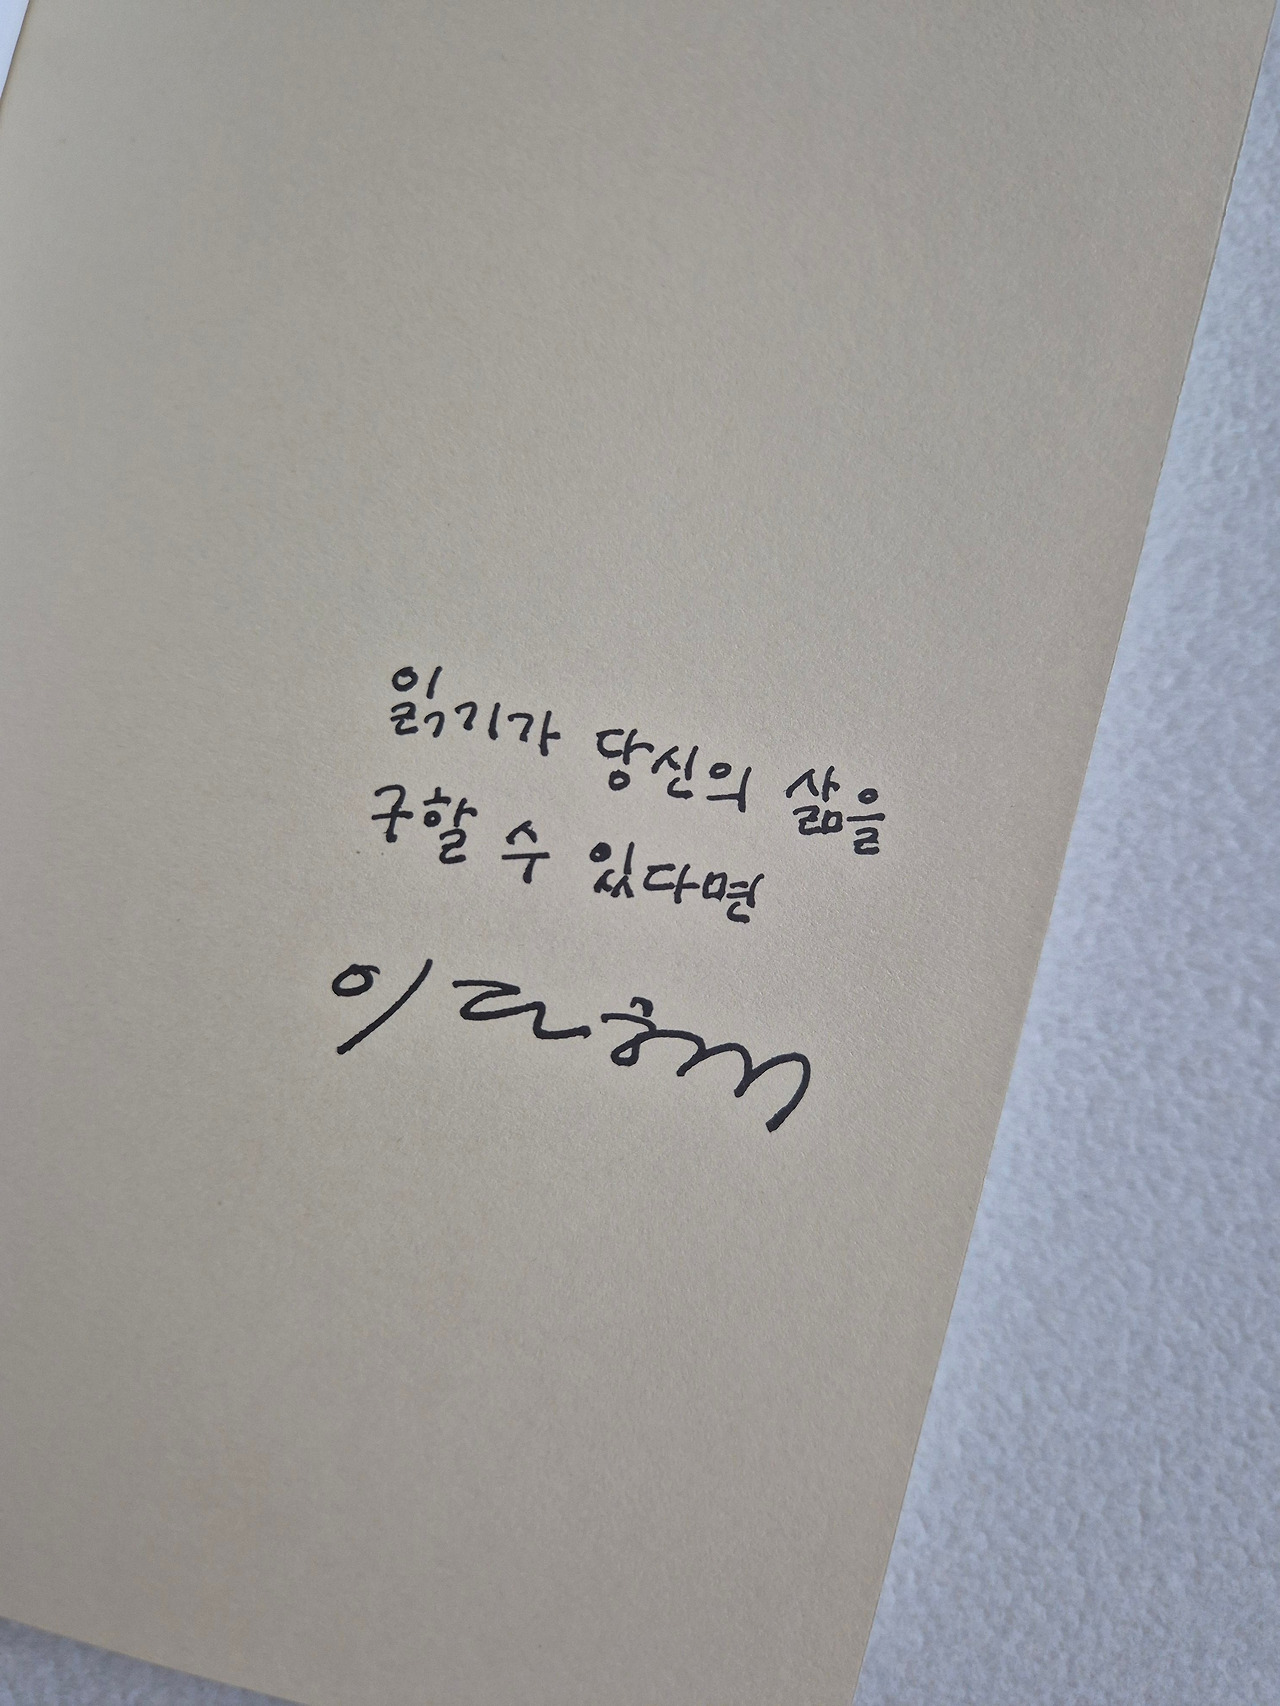 읽기가 당신의 삶을
구할 수 있다면